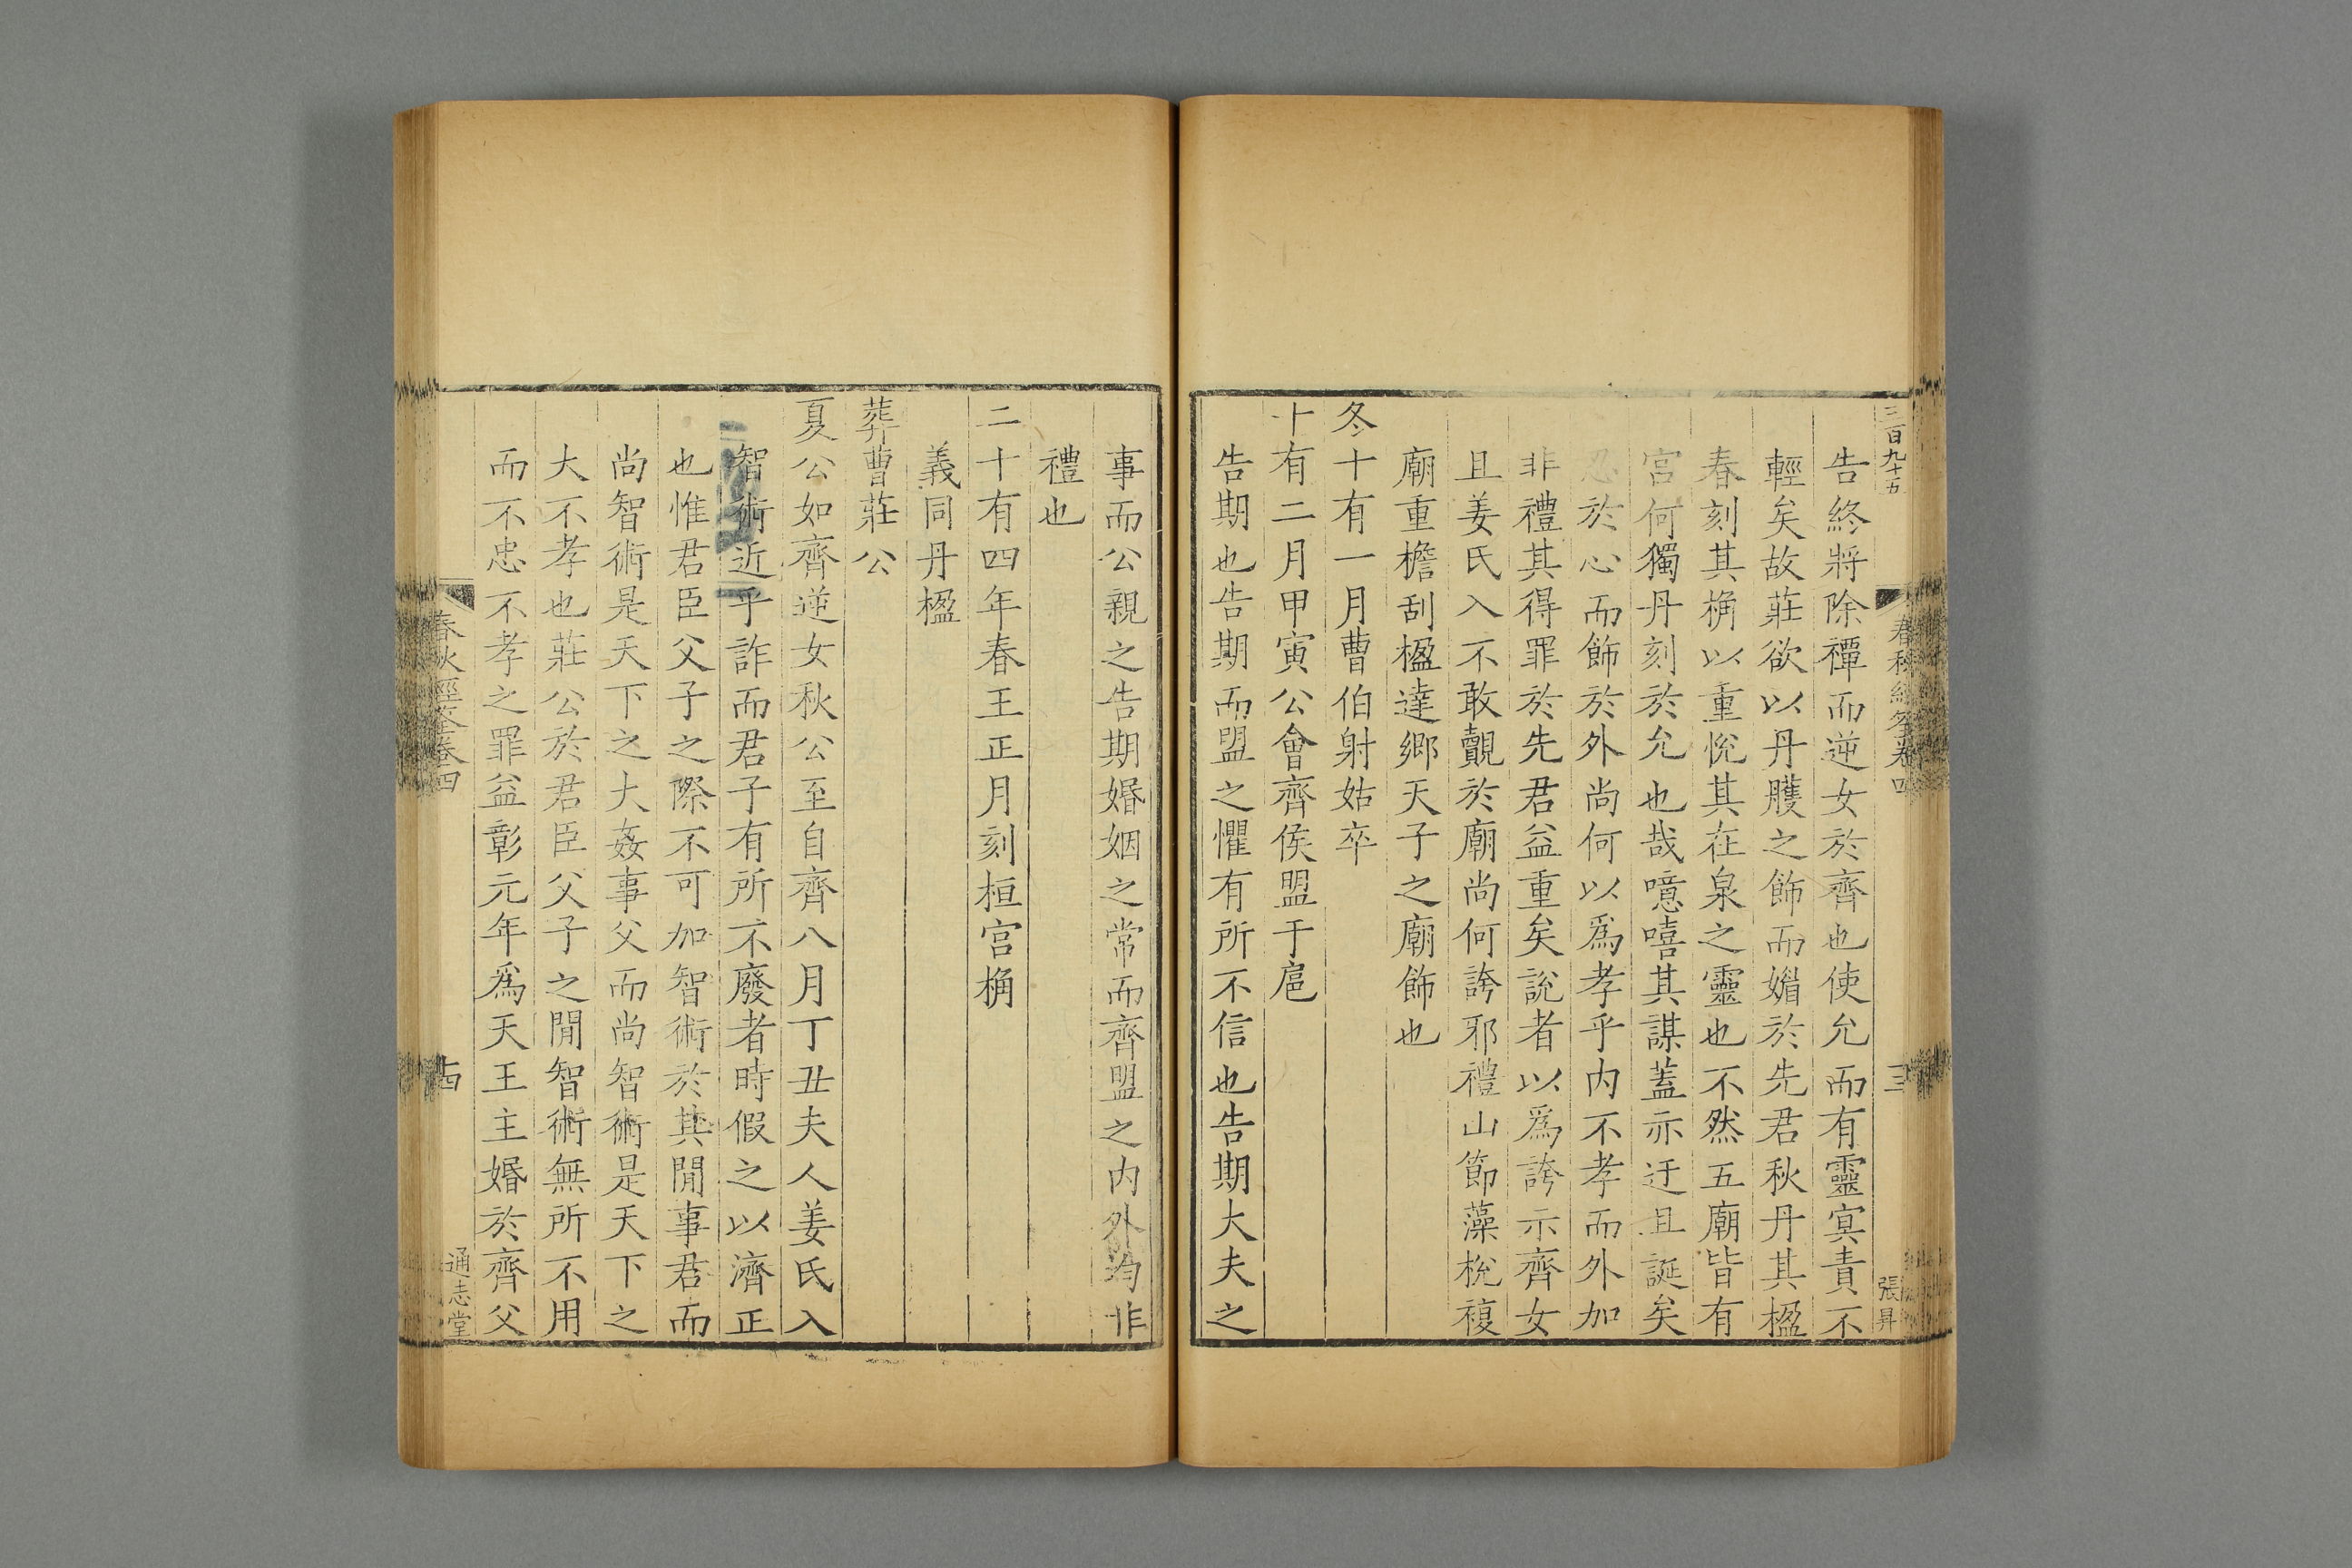 三百九十五
張昇
告終將除禫而逆女於齊也使允而有靈寘責不
輕矣故莊欲以丹雘之飾而媚於先君秋丹其楹
春刻其桷以重悅其在泉之靈也不然五廟皆有
宮何獨丹刻於允也哉噫嘻其謀蓋亦迂且誕矣
忍於心而飾於外尚何以爲孝乎内不孝而外加
非禮其得罪於先君益重矣說者以爲誇示齊女
且姜氏入不敢覿於廟尚何誇邪禮山節藻梲複
廟重檐刮楹達鄉天子之廟飾也
冬十有一月曹伯射姑卒
十有二月甲寅公會齊侯盟于扈
告期也告期而盟之懼有所不信也告期大夫之
事而公親之告期婚姻之常而齊盟之内外均非
禮也
二十有四年春王正月刻桓宮桷
義同丹楹
葬曹莊公
夏公如齊逆女秋公至自齊八月丁丑夫人姜氏入
智術近乎詐而君子有所不廢者時假之以濟正
也惟君臣父子之際不可加智術於其閒事君而
尚智術是天下之大姦事父而尚智術是天下之
大不孝也莊公於君臣父子之閒智術無所不用
而不忠不孝之罪益彰元年爲天王主婚於齊父
春秋經筌卷四
十四
通志堂